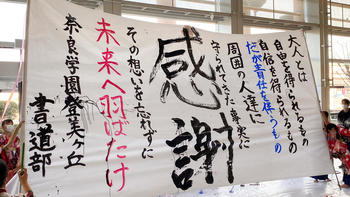 大人とは
自由を得られるもの
自信を得られるもの
だが責任を伴うもの
周囲の人達に
守られてきた事実に
感謝
その想いを忘れずに
未来へ羽ばたけ
奈良学園登美ヶ丘
書道部